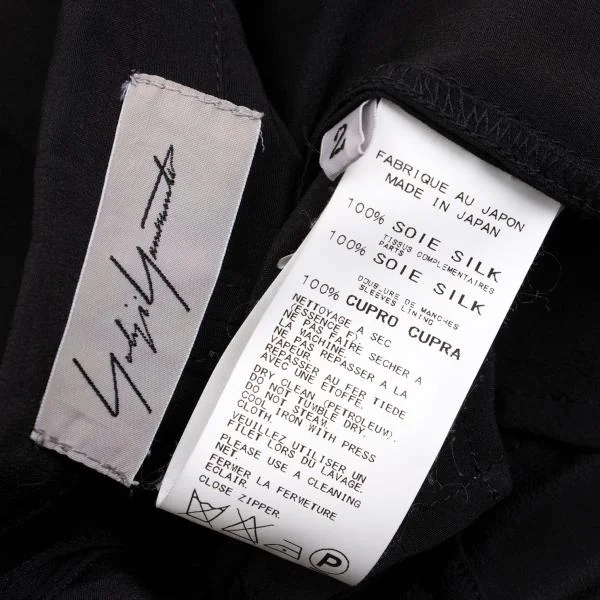 Yohji Yamamoto
2
FABRIQUE AU JAPON
MADE IN JAPAN
100% SOIE SILK
TISSUS COMPLEMENTAIRES
PARTS
100% SOIE SILK
DOUBLURE DE MANCHES
SLEEVES LINING
100% CUPRO CUPRA
NETTOYAGE A SEC
(ESSENCE F)
NE PAS FAIRE SECHER A
LA MACHINE.
VAPEUR REPASSER A LA
REPASSER AU FER TIEDE
AVEC UNE ETOFFE.
DRY CLEAN (PETROLEUM).
DO NOT TUMBLE DRY.
DO NOT STEAM.
COOL IRON WITH PRESS
CLOTH.
VEUILLEZ UTILISER UN
FILET LORS DU LAVAGE.
PLEASE USE A CLEANING
NET.
FERMER LA FERMETURE
ECLAIR.
CLOSE ZIPPER.
P